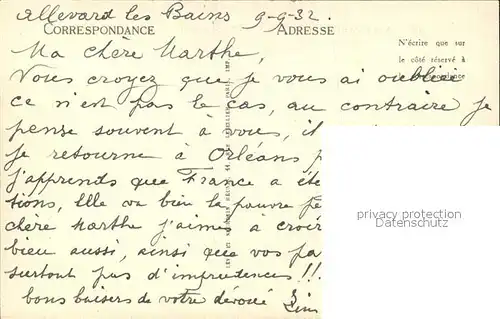 Allevard les Bains 9-9-32.
CORRESPONDANCE ADRESSE
N'écrire que sur
le côté réservé à
Ma chère Marthe,
Vous croyez que je vous ai oubliée
ce n'est pas le cas, au contraire je
pense souvent à vous, il
je retourne à Orléans
j'apprends que France a été
tions, Elle va bien la pauvre pe
chère Marthe j'aime à croir
bien aussi, ainsi que vos pa
surtout pas d'imprudences!!
bons baisers de votre dévoué
privacy protection
Datenschutz